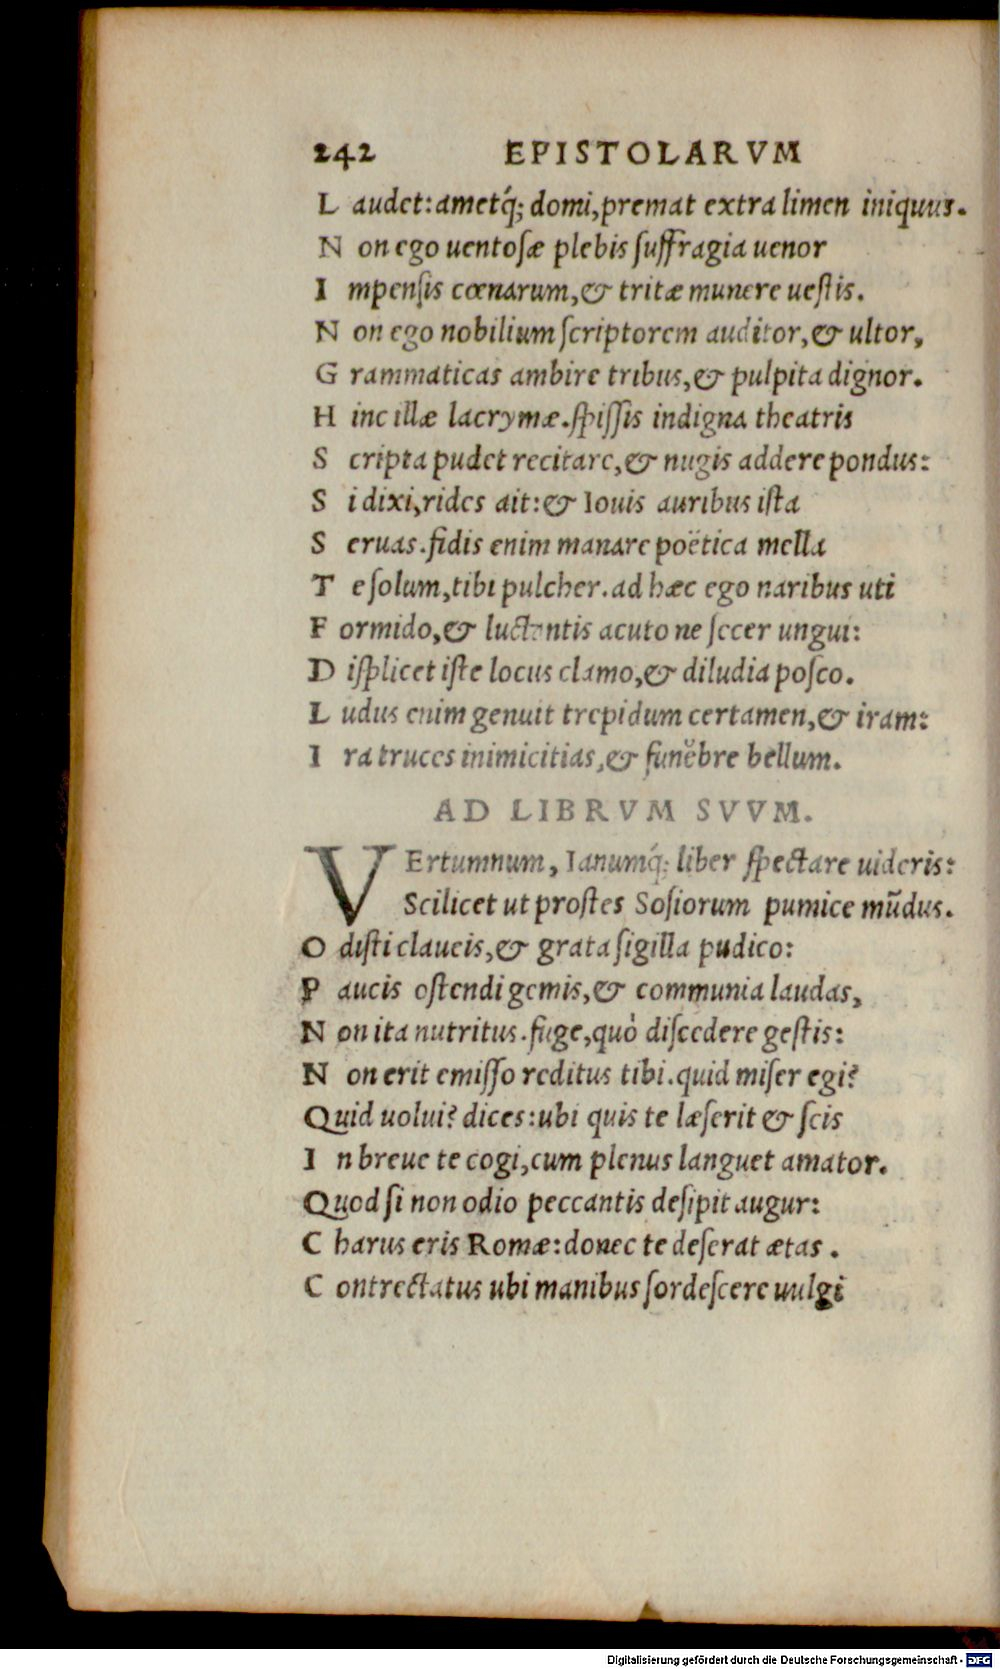 242 EPISTOLARVM
L audet: ametq́; domi, premat extra limen iniquus.
N on ego uentosæ plebis suffragia uenor
I mpensis cœnarum, & tritæ munere uestis.
N on ego nobilium scriptorem auditor, & ultor,
G rammaticas ambire tribus, & pulpita dignor.
H inc illæ lacrymæ. spissis indigna theatris
S cripta pudet recitare, & nugis addere pondus:
S i dixi, rides ait: & Iouis auribus ista
S eruas. fidis enim manare poëtica mella
T e solum, tibi pulcher. ad hæc ego naribus uti
F ormido, & luctantis acuto ne secer ungui:
D isplicet iste locus clamo, & diludia posco.
L udus enim genuit trepidum certamen, & iram:
I ra truces inimicitias, & funĕbre bellum.
AD LIBRVM SVVM.
VErtumnum, Ianumq́; liber spectare uideris:
Scilicet ut prostes Sosiorum pumice mūdus.
O disti claueis, & grata sigilla pudico:
P aucis ostendi gemis, & communia laudas,
N on ita nutritus. fuge, quò discedere gestis:
N on erit emisso reditus tibi. quid miser egi?
Quid uolui? dices: ubi quis te læserit & scis
I n breue te cogi, cum plenus languet amator.
Quod si non odio peccantis desipit augur:
C harus eris Romæ: donec te deserat ætas.
C ontrectatus ubi manibus sordescere uulgi
Digitalisierung gefördert durch die Deutsche Forschungsgemeinschaft - DFG